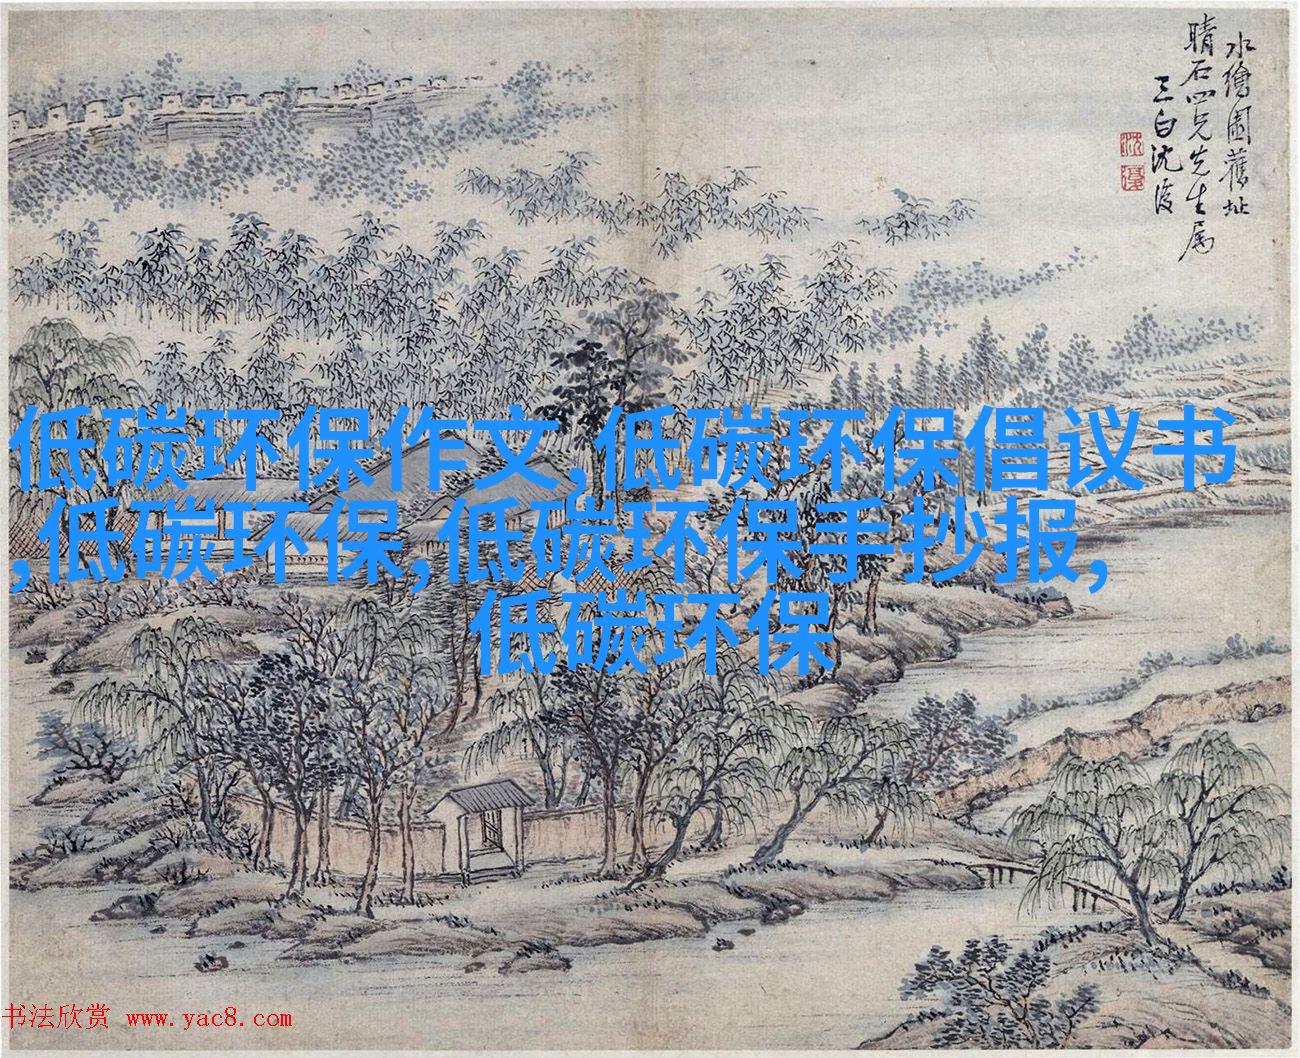 水繪園舊址
晴石四兄先生属
三白沈復
沈
復
低碳环保作文,低碳环保倡议书
,低碳环保,低碳环保手抄报,
低碳环保
书法欣赏 www.yac8.com